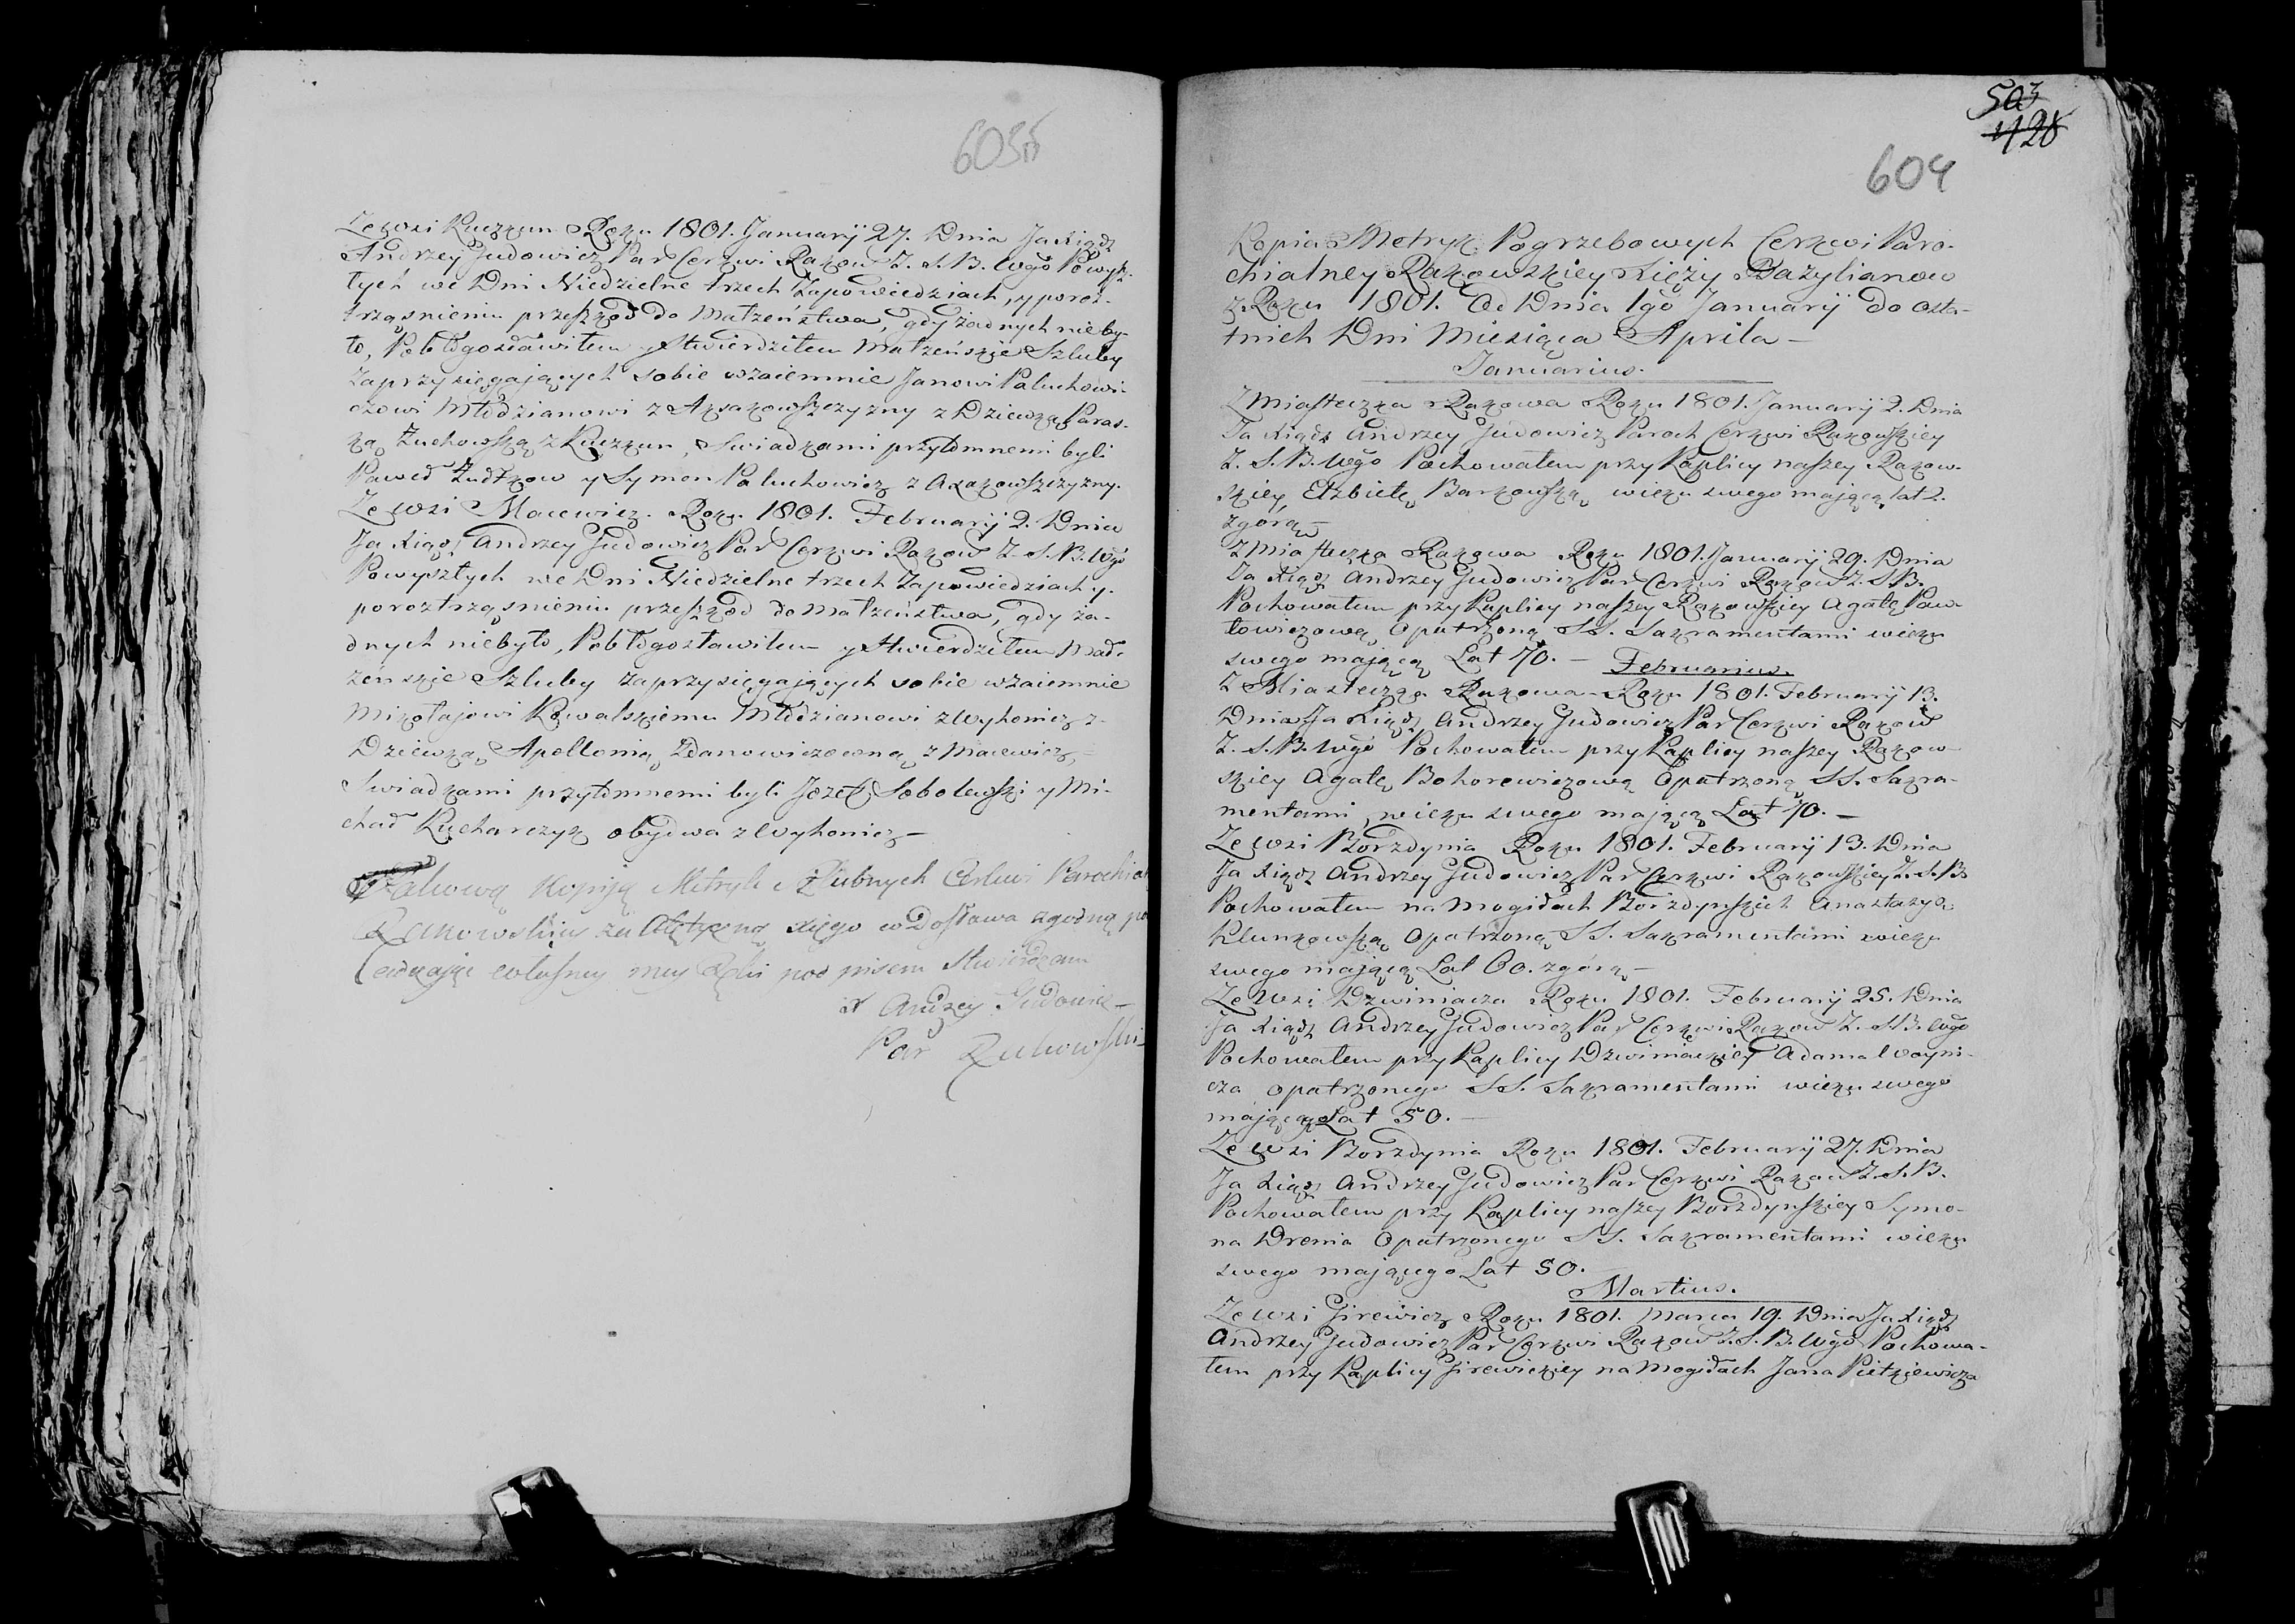 603
Ze Wsi Kuczkun Roku 1801. Januarij 27. Dnia Ja Xiądz
Andrzey Judowicz Par Cerkwi Rakow Z. S. B. Wgo Powysz-
łych we Dni Niedzielne trzech Zapowiedziach, y poroz-
trząsnieniu przeszkod do Małzeństwa, gdy żadnych nieby-
ło, Pobłogosławiłem y Stwierdziłem Małzeńskie Szluby
Zaprzysięgających sobie wzaiemnie Janowi Paluchowi-
czowi Młodzianowi z Aksakowszczyzny z Dziewką Paras-
ką Żuchowską z Kuczkun, Swiadkami przytomnemi byli
Paweł y Symon Paluchowicz z Axakowszczyzny.
Ze Wsi Macewicz. Roku 1801. Februarij 2. Dnia
Ja Xiądz Andrzey Judowicz Par Cerkwi Rakow Z. S. B. Wgo
Powyszłych we Dni Niedzielne trzech Zapowiedziach y
poroztrząsnieniu przeszkod do Małzeństwa, gdy ża-
dnych niebyło, Pobłogosławiłem y Stwierdziłem Mał-
zenskie Szluby zaprzysięgających sobie wzaiemnie
Mikołajowi Kowalskiemu Młodzianowi z Wyhonicz z
Dziewką Apollonią Zdanowiczowną z Macewicz,
Swiadkami przytomnemi byli Jozef Sobolewski y Mi-
chał Kucharczyk obydwa z Wyhonicz—
Takową Kopiją Metryk Szlubnych Cerkwi Parochial
Rakowskiey za zgodną
własney mey Ręki pod pisem Stwierdzam
X Andrzey Judowicz—
Par Rakowski
503
428
604
Kopia Metryk Pogrzebowych Cerkwi Paro-
chialney Rakowskiey Xięży Bazylianow
z Roku 1801. Od Dnia 1go Januarij do osta-
tnich Dni Miesiąca Aprila—
Januarius.
Z Miasteczka Rakowa Roku 1801. Januarij 2. Dnia
Ja Xiądz Andrzey Judowicz Paroch Cerkwi Rakowskiey
Z. S. B. Wgo Pochowałem przy Kaplicy naszey Rakow-
skiey, Elżbietę Barkowską wieku swego mającą lat 2.
zgórą—
Z Miasteczka Rakowa Roku 1801. Januarij 29. Dnia
Ja Xiądz Andrzey Judowicz Par Cerkwi Rakow Z. S. B.
Pochowałem przy Kaplicy naszey Rakowskiey Agatę Paw-
łowiczową Opatrzoną SS. Sakramentami wieku
swego mającą Lat 70.— Februarius.
Z Miasteczka Rakowa Roku 1801. Februarij 13.
Dnia Ja Xiądz Andrzey Judowicz Par Cerkwi Rakow
Z. S. B. Wgo Pochowałem przy Kaplicy naszey Rakow-
skiey Agatę Bohorewiczową Opatrzoną SS. Sakra-
mentami, wieku swego mającą Lat 70.—
Ze Wsi Borzdynia Roku 1801. Februarij 13. Dnia
Ja Xiądz Andrzey Judowicz Par Cerkwi Rakowskiey Z. S. B.
Pochowałem na Mogiłach Borzdynskich Anastazyą
Klunkowską Opatrzoną SS. Sakramentami wieku
swego mającą Lat 60. zgórą—
Ze Wsi Dzwiniacza Roku 1801. Februarij 25. Dnia
Ja Xiądz Andrzey Judowicz Par Cerkwi Rakow Z. S. B. Wgo
Pochowałem przy Kaplicy Dzwiniackiey Adama Woyni-
cza opatrzonego SS. Sakramentami wieku swego
mającego Lat 50.—
Ze Wsi Borzdynia Roku 1801. Februarij 27. Dnia
Ja Xiądz Andrzey Judowicz Par Cerkwi Rakow Z. S. B.
Pochowałem przy Kaplicy naszey Borzdynskiey Symo-
na Drenia Opatrzonego SS. Sakramentami wieku
swego mającego Lat 50.
Martius.
Ze Wsi Girewicz Roku 1801. Marca 19. Dnia Ja Xiądz
Andrzey Judowicz Par Cerkwi Rakow Z. S. B. Wgo Pochowa-
łem przy Kaplicy Girewickiey na Mogiłach Jana Pietkiewicza